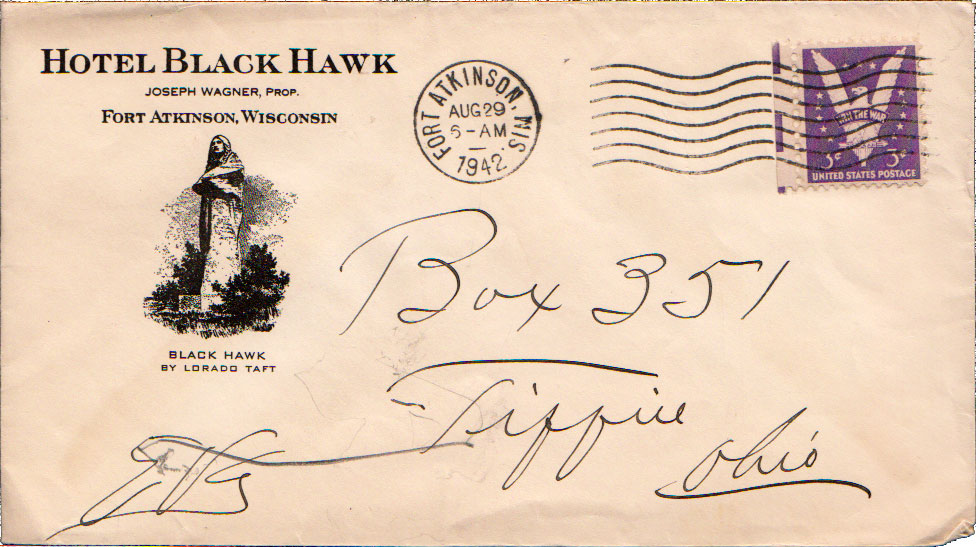 HOTEL BLACK HAWK
JOSEPH WAGNER, PROP.
FORT ATKINSON, WISCONSIN
BLACK HAWK
BY LORADO TAFT
FORT ATKINSON, WIS.
AUG 29
6-AM
1942
WIN THE WAR
3¢ 3¢
UNITED STATES POSTAGE
Box 351
Ohio